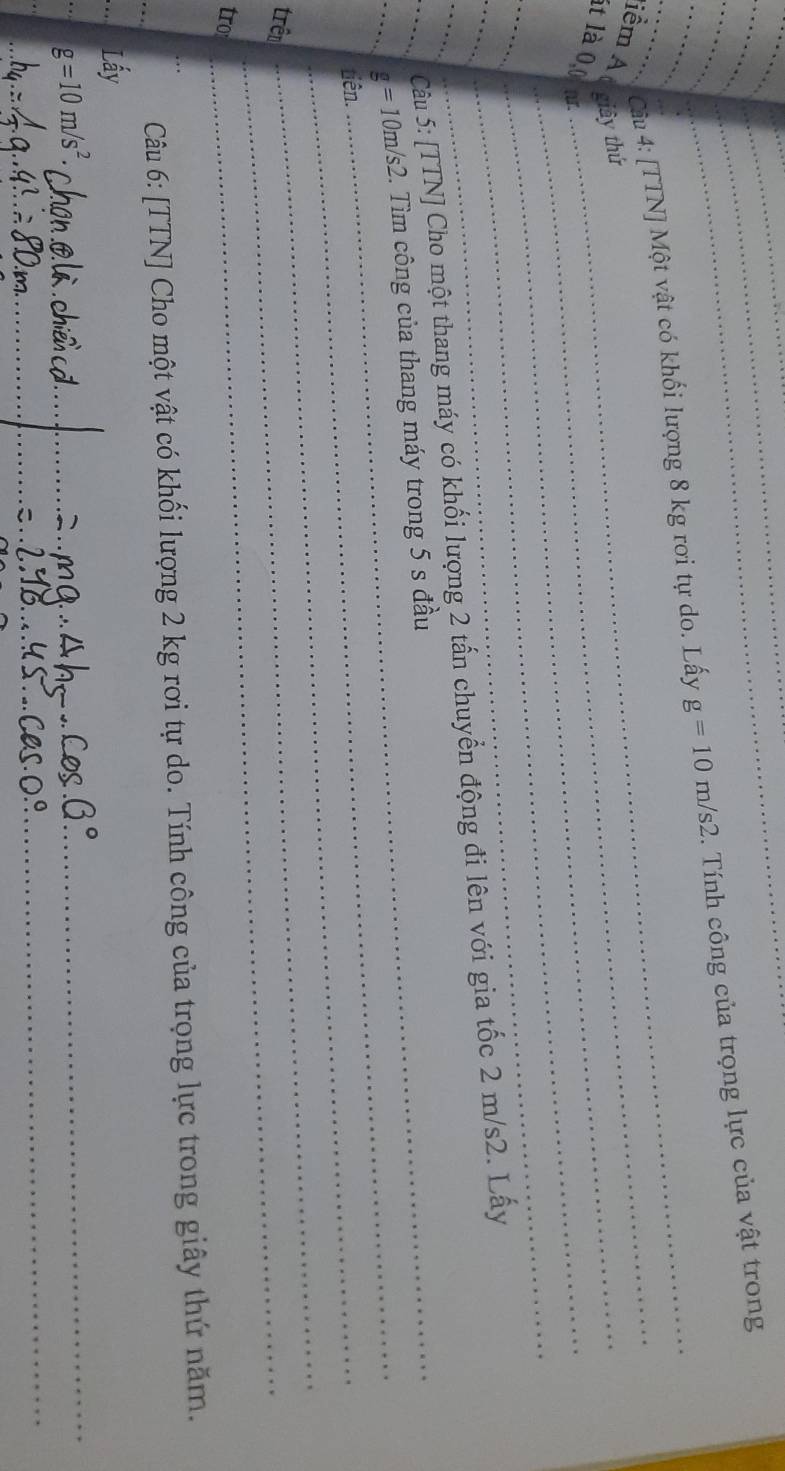 Câu 4: [TTN] Một vật có khối lượng 8 kg rơi tự do. Lấy g = 10 m/s2. Tính công của trọng lực của vật trong
giây thứ tư.
Câu 5: [TTN] Cho một thang máy có khối lượng 2 tấn chuyển động đi lên với gia tốc 2 m/s2. Lấy
g = 10m/s2. Tìm công của thang máy trong 5 s đầu
tiên.
Câu 6: [TTN] Cho một vật có khối lượng 2 kg rơi tự do. Tính công của trọng lực trong giây thứ năm.
Lấy
g = 10 m/s².
là chiều cđ
= mg . Δh5 . Cos 0°
h4 = 1/2 g.4² = 80 m
. 45 . Cos 0°
iểm A
ất là 0,0
trên
tro